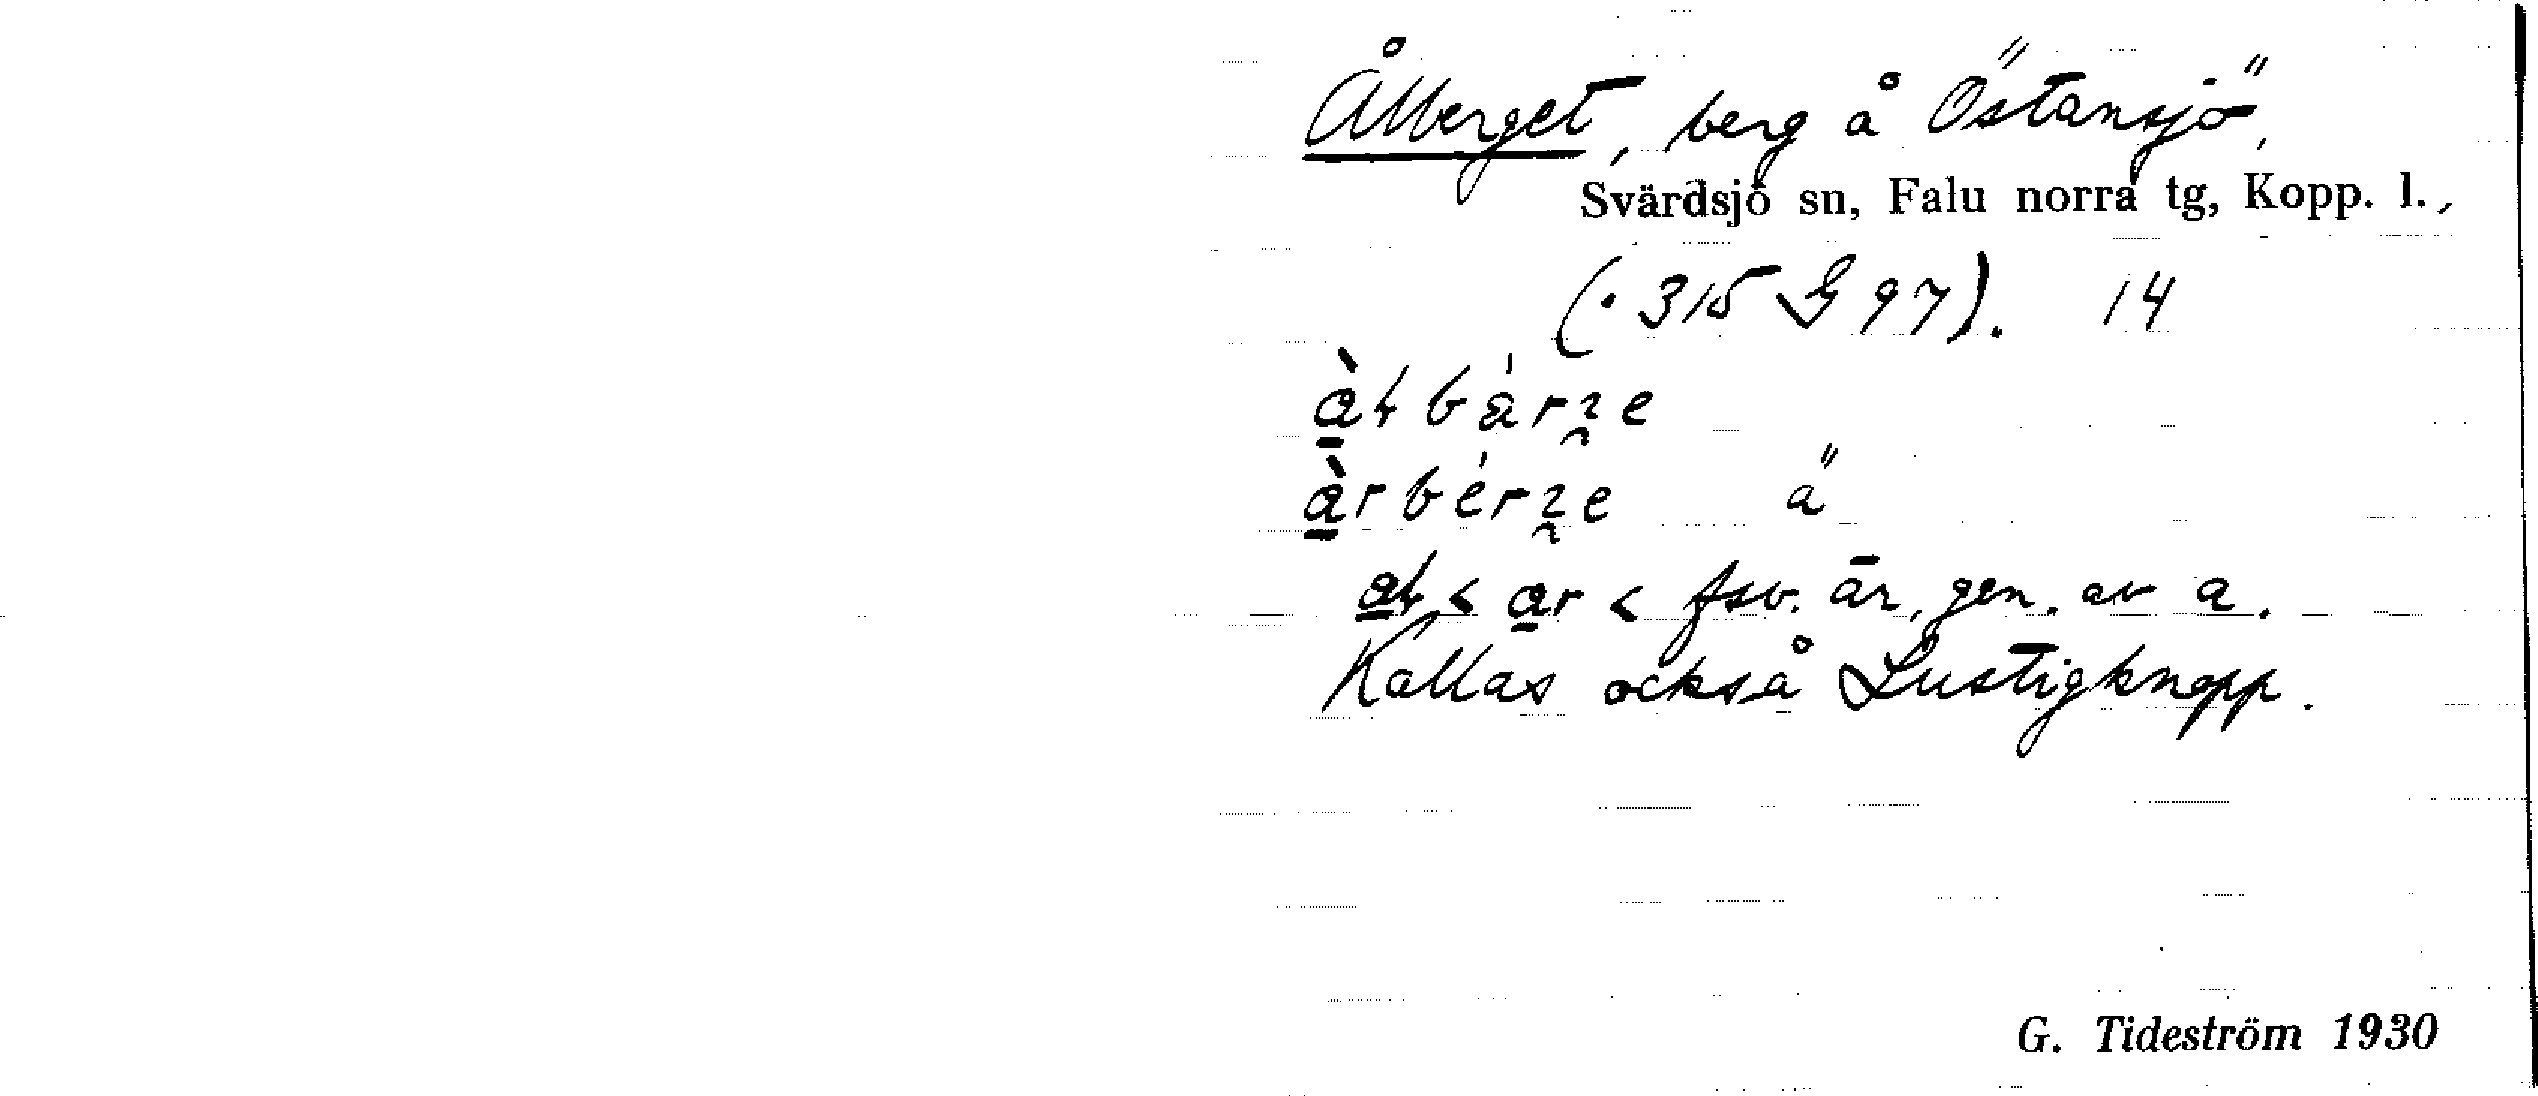 Ålberget, berg å Östansjö,
Svärdsjö sn, Falu norra tg, Kopp. l.,
(· 315 G 97). 14
àrbérʒe ä
< ar < fsv. ār, gen. av a.
Kallas också Lustigknopp.
G. Tideström 1930